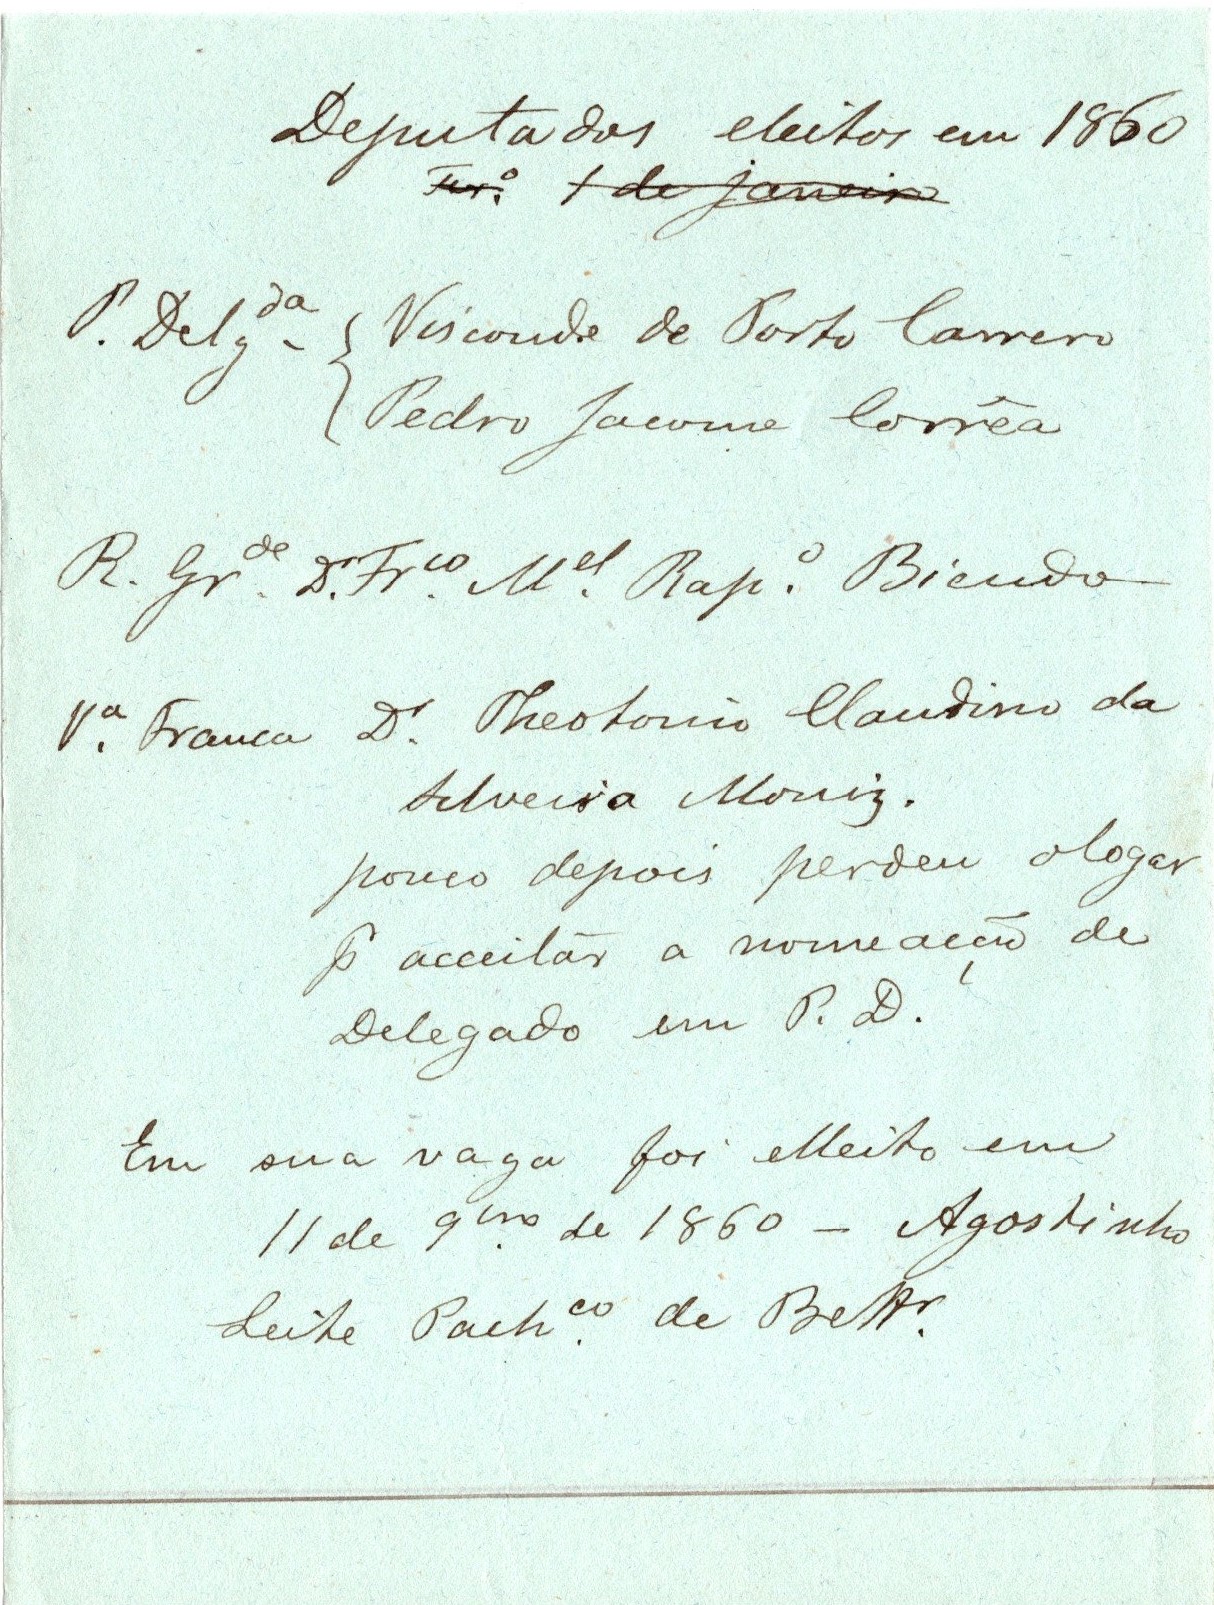 Deputados eleitos em 1860
1 de janeiro
P. Delg.da { Visconde de Porto Carrero
Pedro Jacome Corrêa
R. Gr.de Dr. Fr.co M.el Rap.o Bicudo
V.a Franca Dr. Theotonio Claudino da
Silveira Moniz.
pouco depois perdeu o logar
p acceitar a nomeação de
Delegado em P. D.
Em sua vaga foi elleito em
11 de 9bro de 1860 — Agostinho
Leite Pach.co de Bettr.